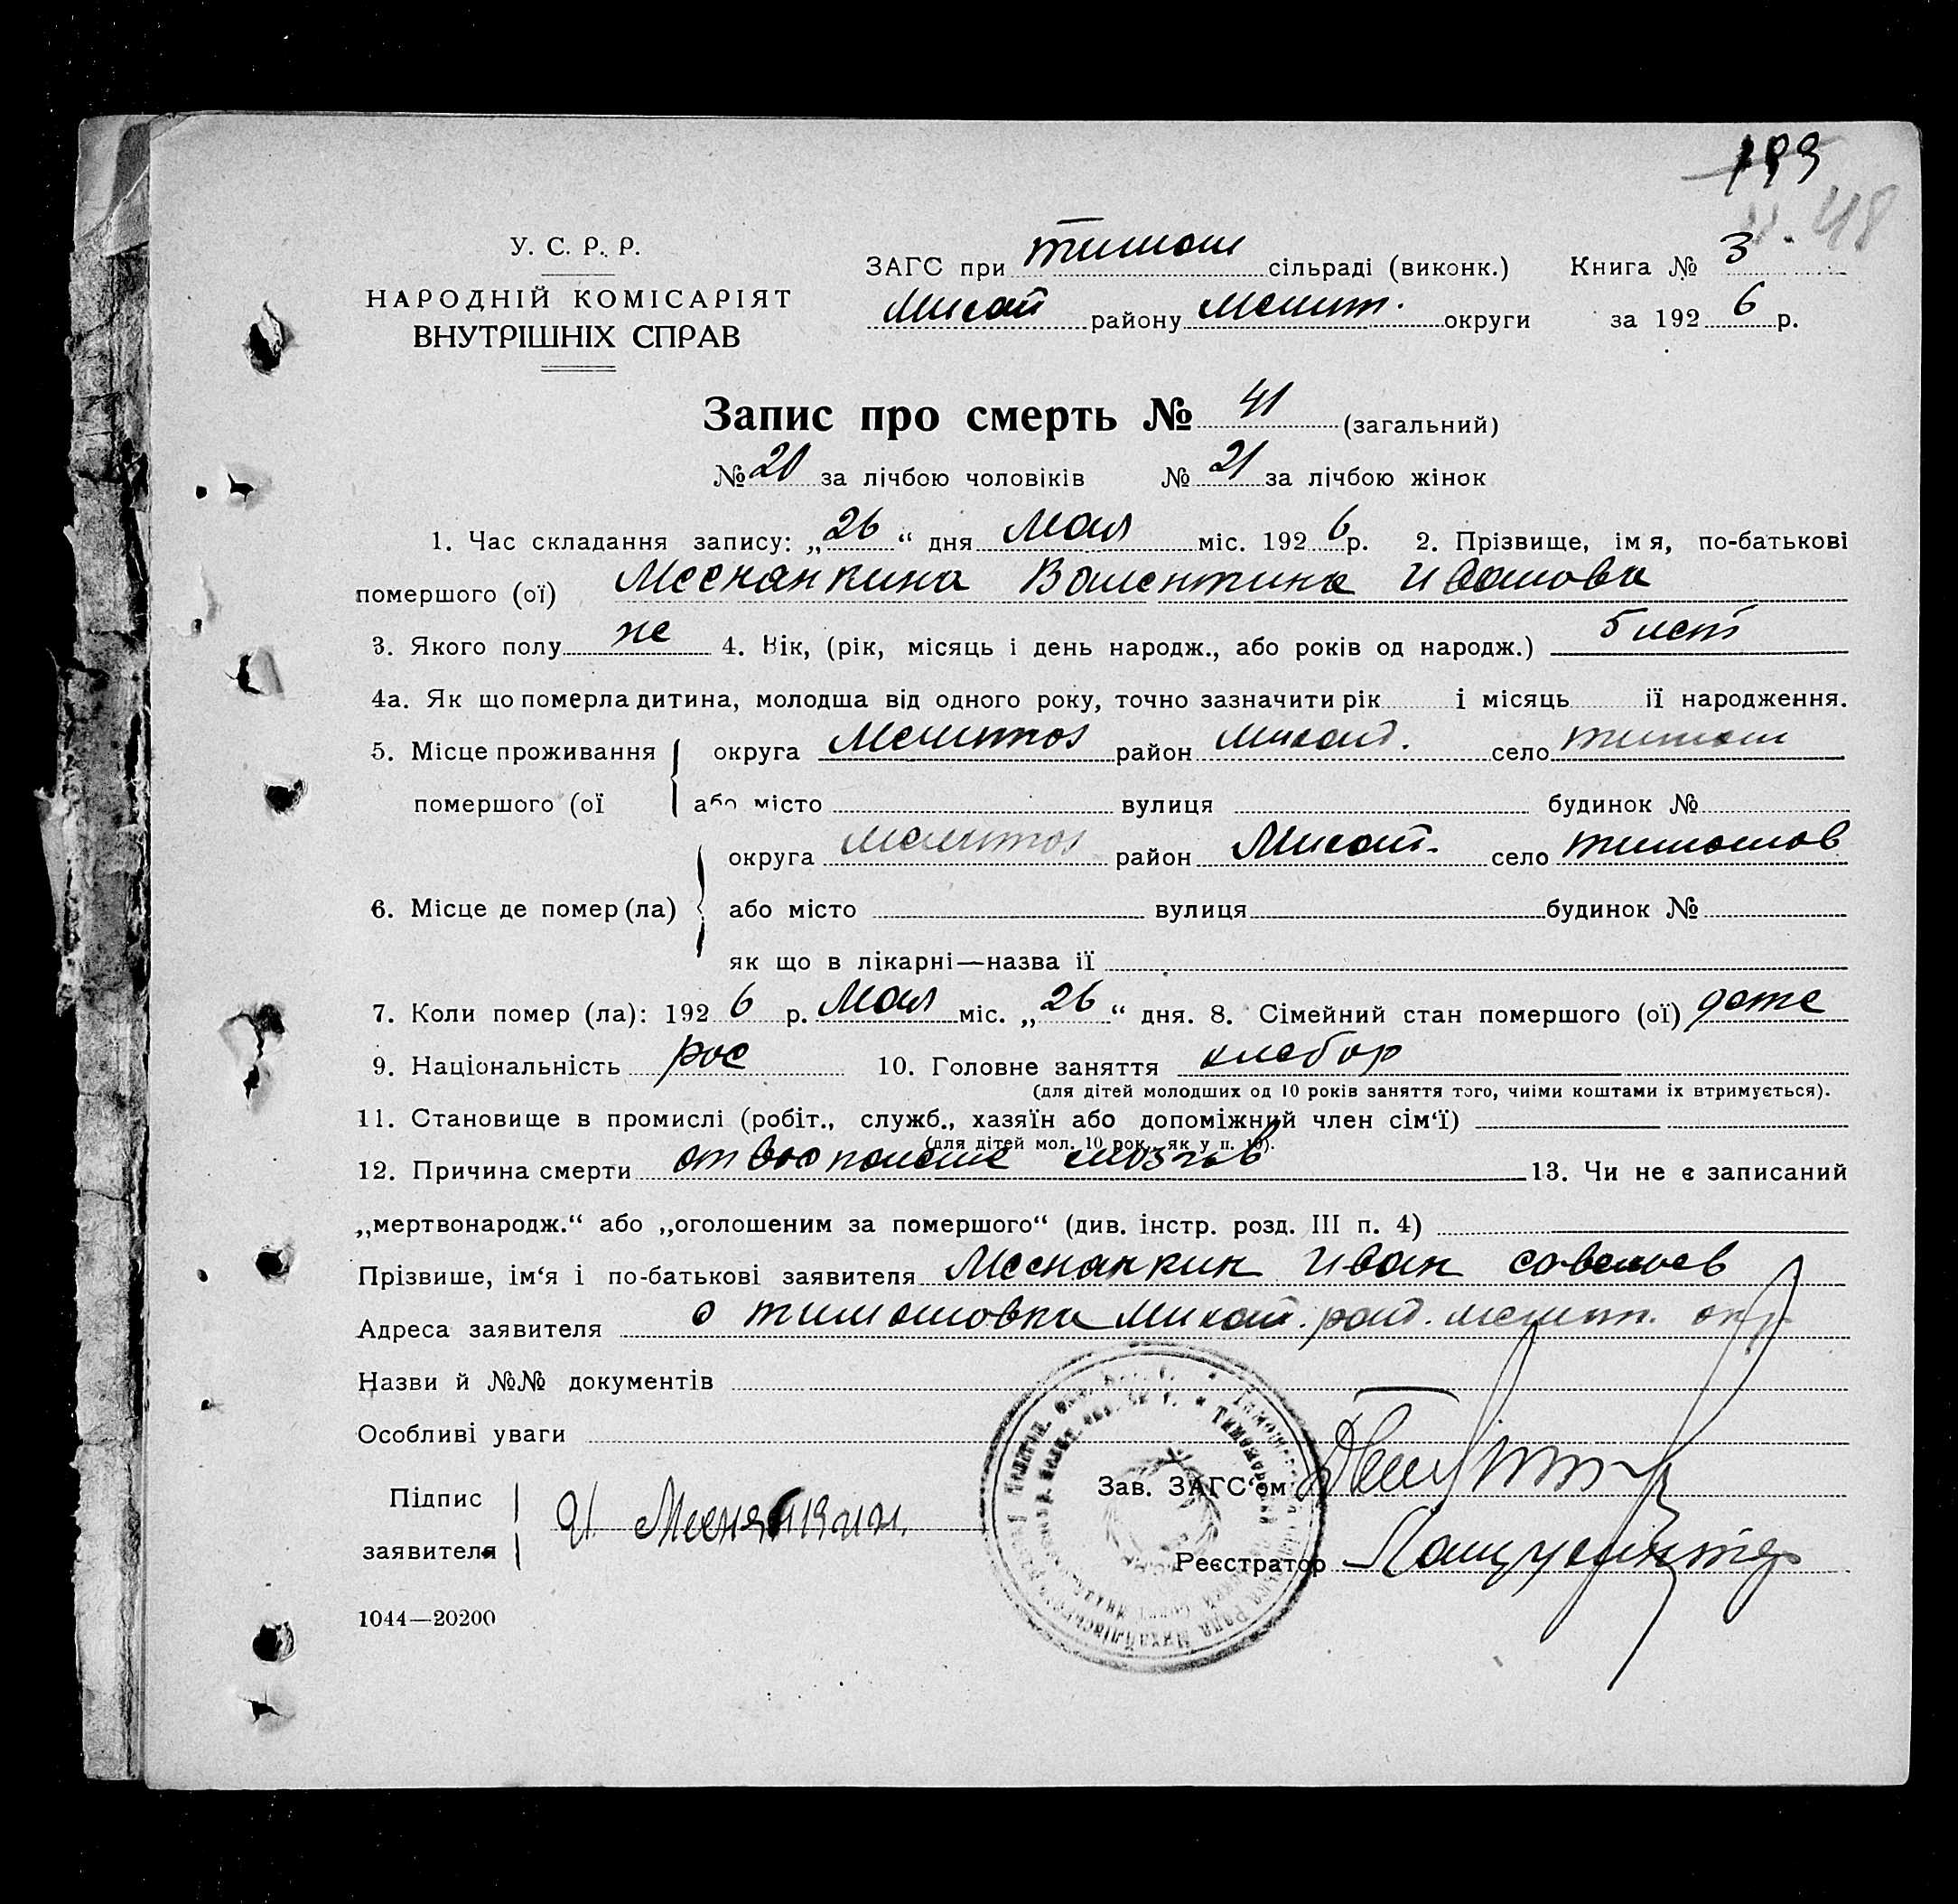 199
48
У. С. Р. Р.
НАРОДНІЙ КОМІСАРІЯТ
ВНУТРІШНІХ СПРАВ
ЗАГС при тимош сільраді (виконк.) Книга № 3
Михай району Мелит. округи за 1926 р.
Запис про смерть № 41 (загальний)
№ 20 за лічбою чоловіків № 21 за лічбою жінок
1. Час складання запису: „26“ дня Мая міс. 1926 р. 2. Прізвище, ім я, по-батькові
помершого (ої) Меснянкина Валентина Иванова
3. Якого полу же 4. Вік, (рік, місяць і день народж., або років од народж.) 5 лет
4а. Як що померла дитина, молодша від одного року, точно зазначити рік і місяць ії народження.
5. Місце проживання округа Мелитоп район Михай. село тимош
помершого (ої або місто вулиця будинок №
округа мелитоп район Михай. село тимошов
6. Місце де помер (ла) або місто вулиця будинок №
як що в лікарні—назва ії
7. Коли помер (ла): 1926 р. Мая міс. „26“ дня. 8. Сімейний стан помершого (ої) дете
9. Національність рос 10. Головне заняття хлебор
(для дітей молодших од 10 років заняття того, чиїми коштами іх втримується).
11. Становище в промислі (робіт., служб., хазяїн або допоміжний член сім‘ї)
(для дітей мол. 10 рок., як у п. 10).
12. Причина смерти от воспоение мозгов 13. Чи не є записаний
„мертвонародж.“ або „оголошеним за помершого“ (див. інстр. розд. III п. 4)
Прізвише, ім‘я і по-батькові заявителя Меснянкин Иван савельев
Адреса заявителя с тимошовка Михай. рай. мелит. окр
Назви й №№ документів
Особливі уваги
Підпис
заявителя И Меснянкин.
Зав. ЗАГС‘ом
Реєстратор
1044—20200